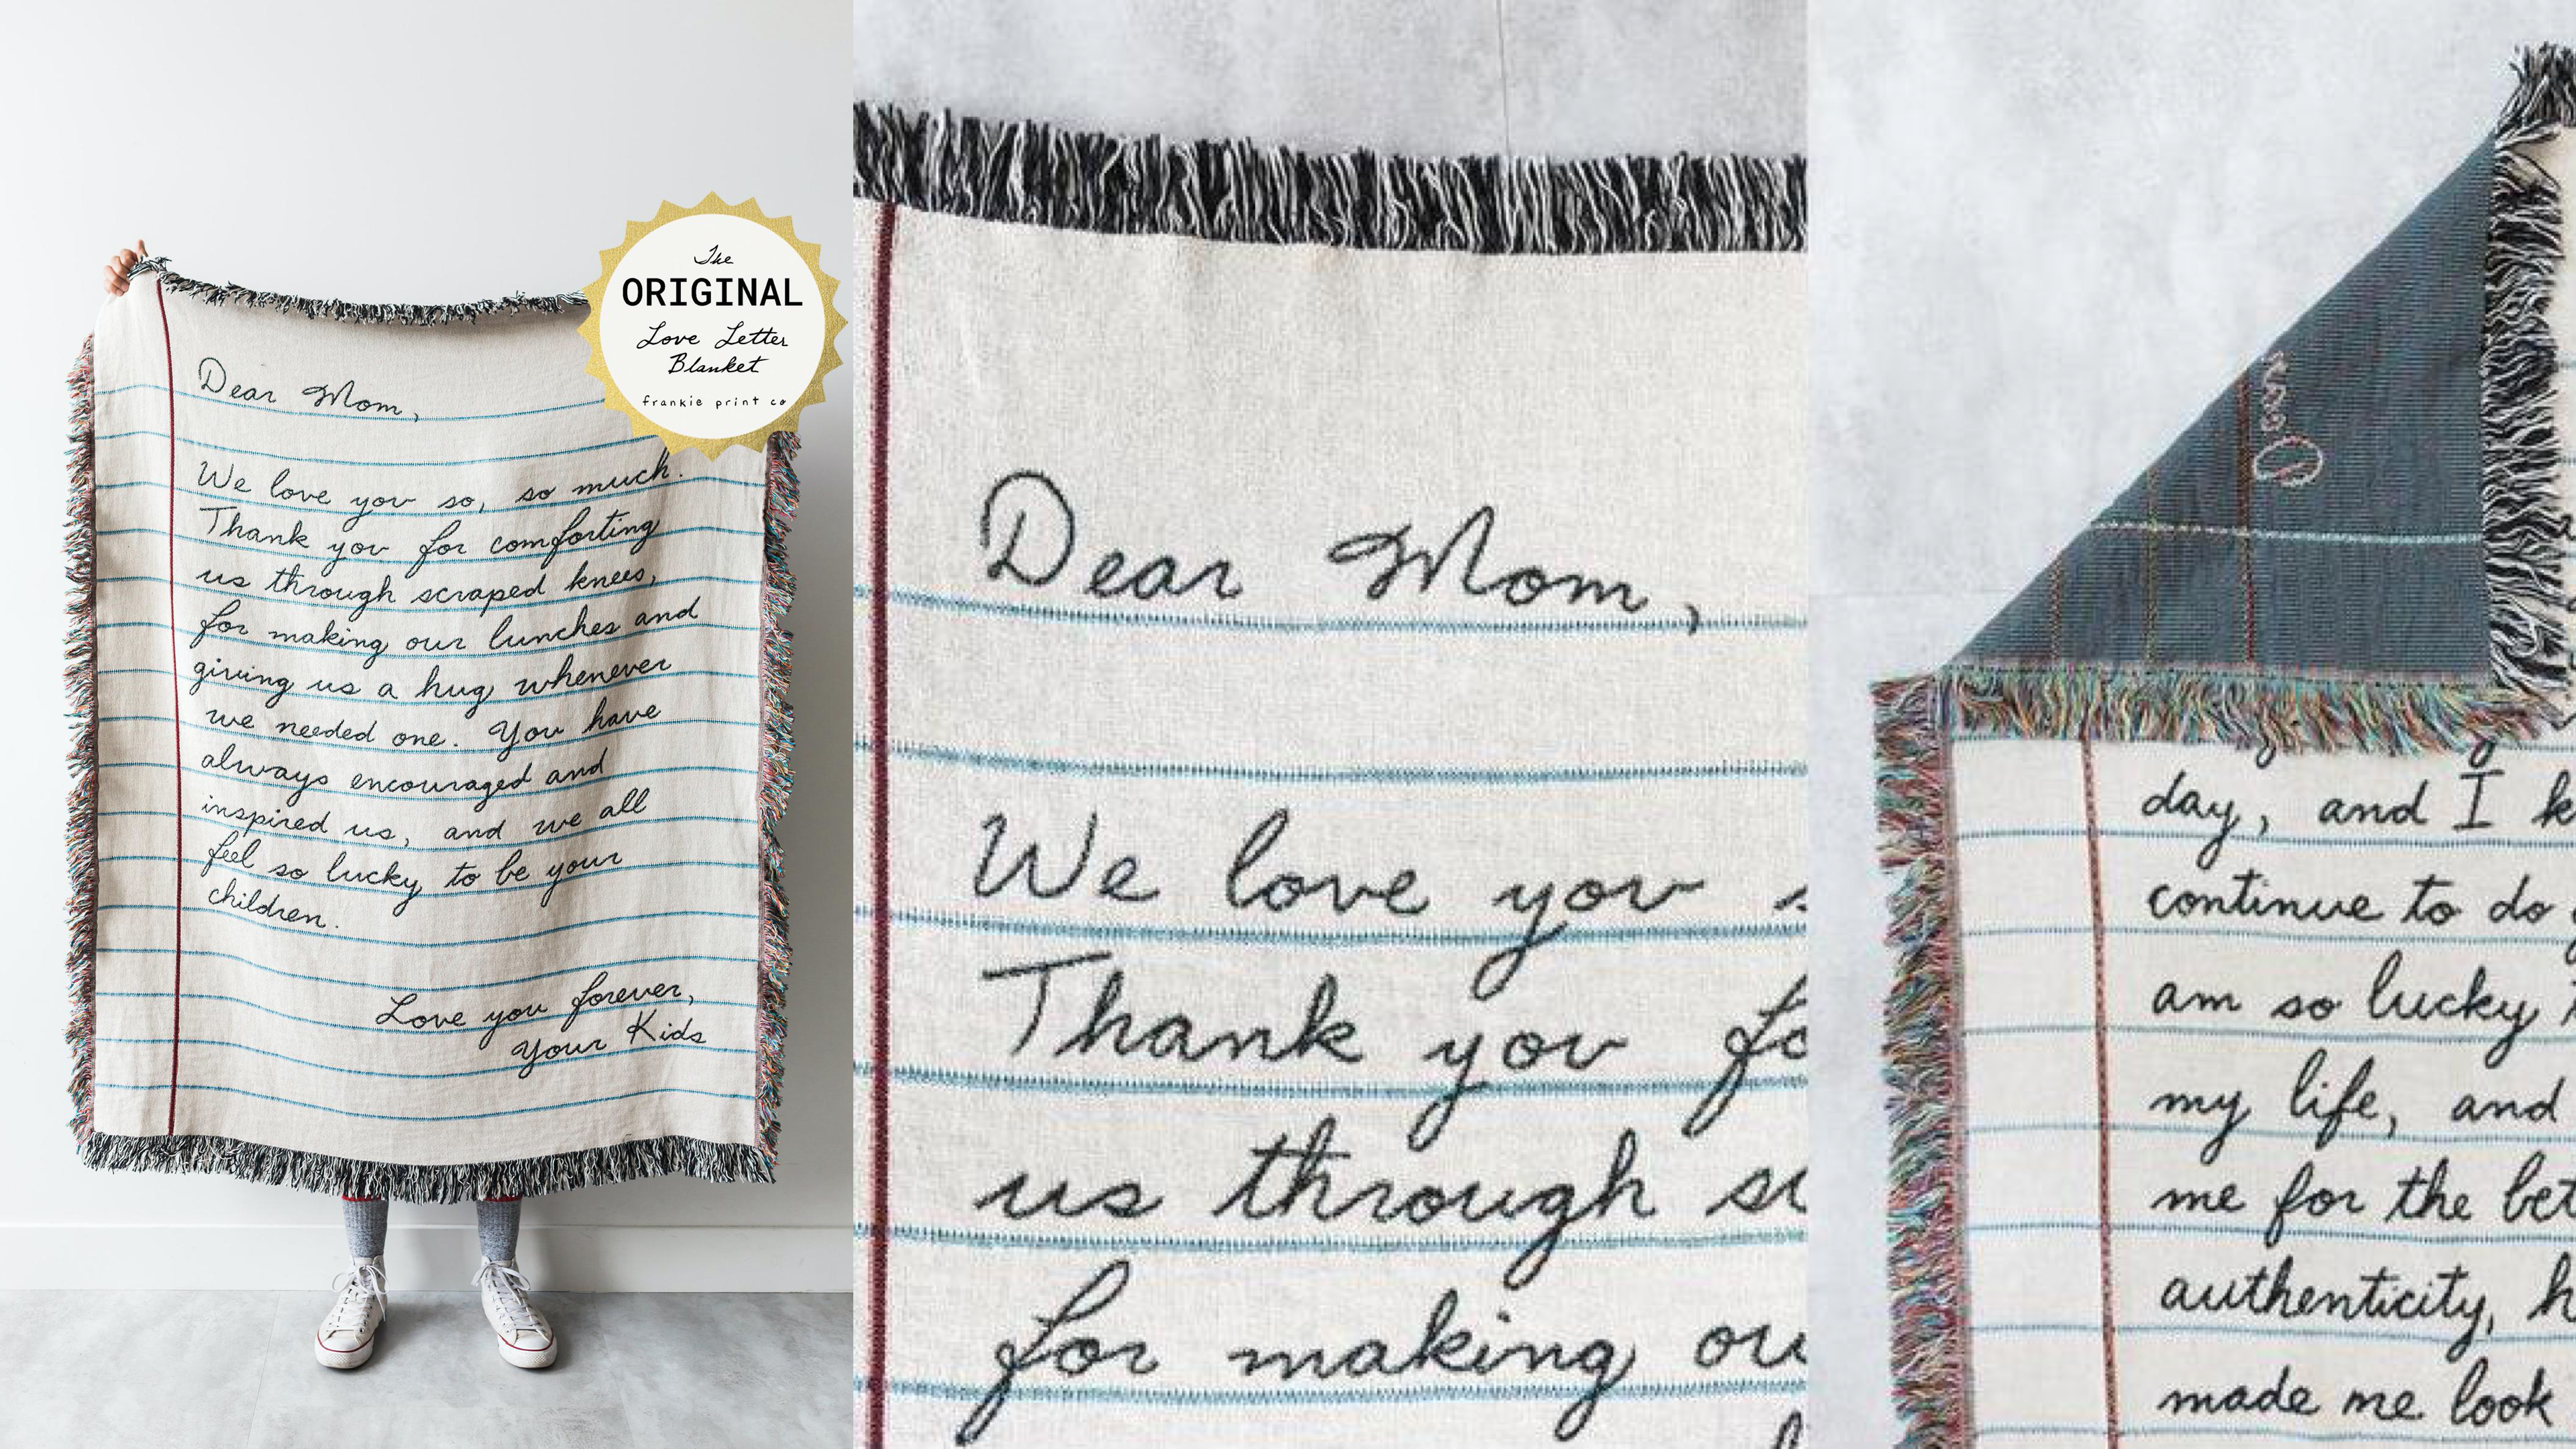 The
ORIGINAL
Love Letter
Blanket
frankie print co
Dear Mom,
We love you so, so much.
Thank you for comforting
us through scraped knees,
for making our lunches and
giving us a hug whenever
we needed one. You have
always encouraged and
inspired us, and we all
feel so lucky to be your
children.
Love you forever,
Your Kids
Dear Mom,
We love you
Thank you fo
us through sc
for making ou
Dear
day, and I k
continue to do
am so lucky
my life, and
me for the bet
authenticity, h
made me look